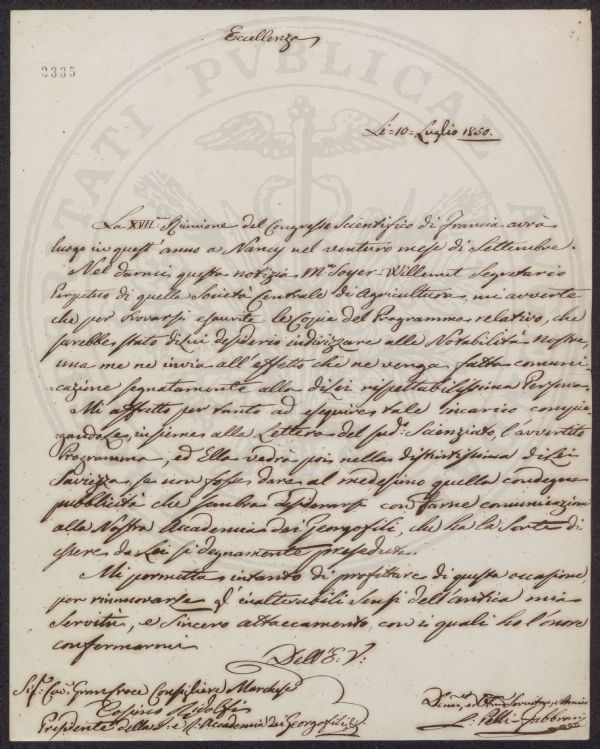 Eccellenza
2335
TATI PVBLICAE
Li = 10 = Luglio 1850.
La XVII.ma Riunione del Congresso Scientifico di Francia avrà
luogo in quest'anno a Nancy nel venturo mese di Settembre.
Nel darmi questa notizia Mr. Soyer-Willemet Segretario
Perpetuo di quella Società Centrale di Agricultura, mi avverte
che per trovarsi esaurite le Copie del Programma relativo, che
sarebbe stato di Lui desiderio indirizzare alle Notabilità nostre,
una me ne invia all'effetto che ne venga fatta comuni-
cazione segnatamente alla di Lei rispettabilissima Persona.
Mi affretto per tanto ad eseguire tale incarico compie-
gandole, insieme alla Lettera del sud.o Scienziato, l'avvertito
Programma, ed Ella vedrà poi nella distintissima di Lei
Saviezza se non fosse dare al medesimo quella condegna
pubblicità che sembra desiderarsi con farne comunicazione
alla Nostra Accademia dei Georgofili, che ha la Sorte di
essere da Lei sì degnamente preseduta.
Mi permetta intanto di profittare di questa occasione
per rinnuovarle gl'inalterabili Sensi dell'antica mia
Servitù, e Sincero attaccamento, con i quali ho l'onore
confermarmi
Dell'E. V.:
Sig.r Cav. Gran Croce Consigliere Marchese
Cosimo Ridolfi
Presidente della I. e R. Accademia dei Georgofili
Dev.mo ed Obb.mo Servitore, e Amico
L. Pelli-Fabbroni